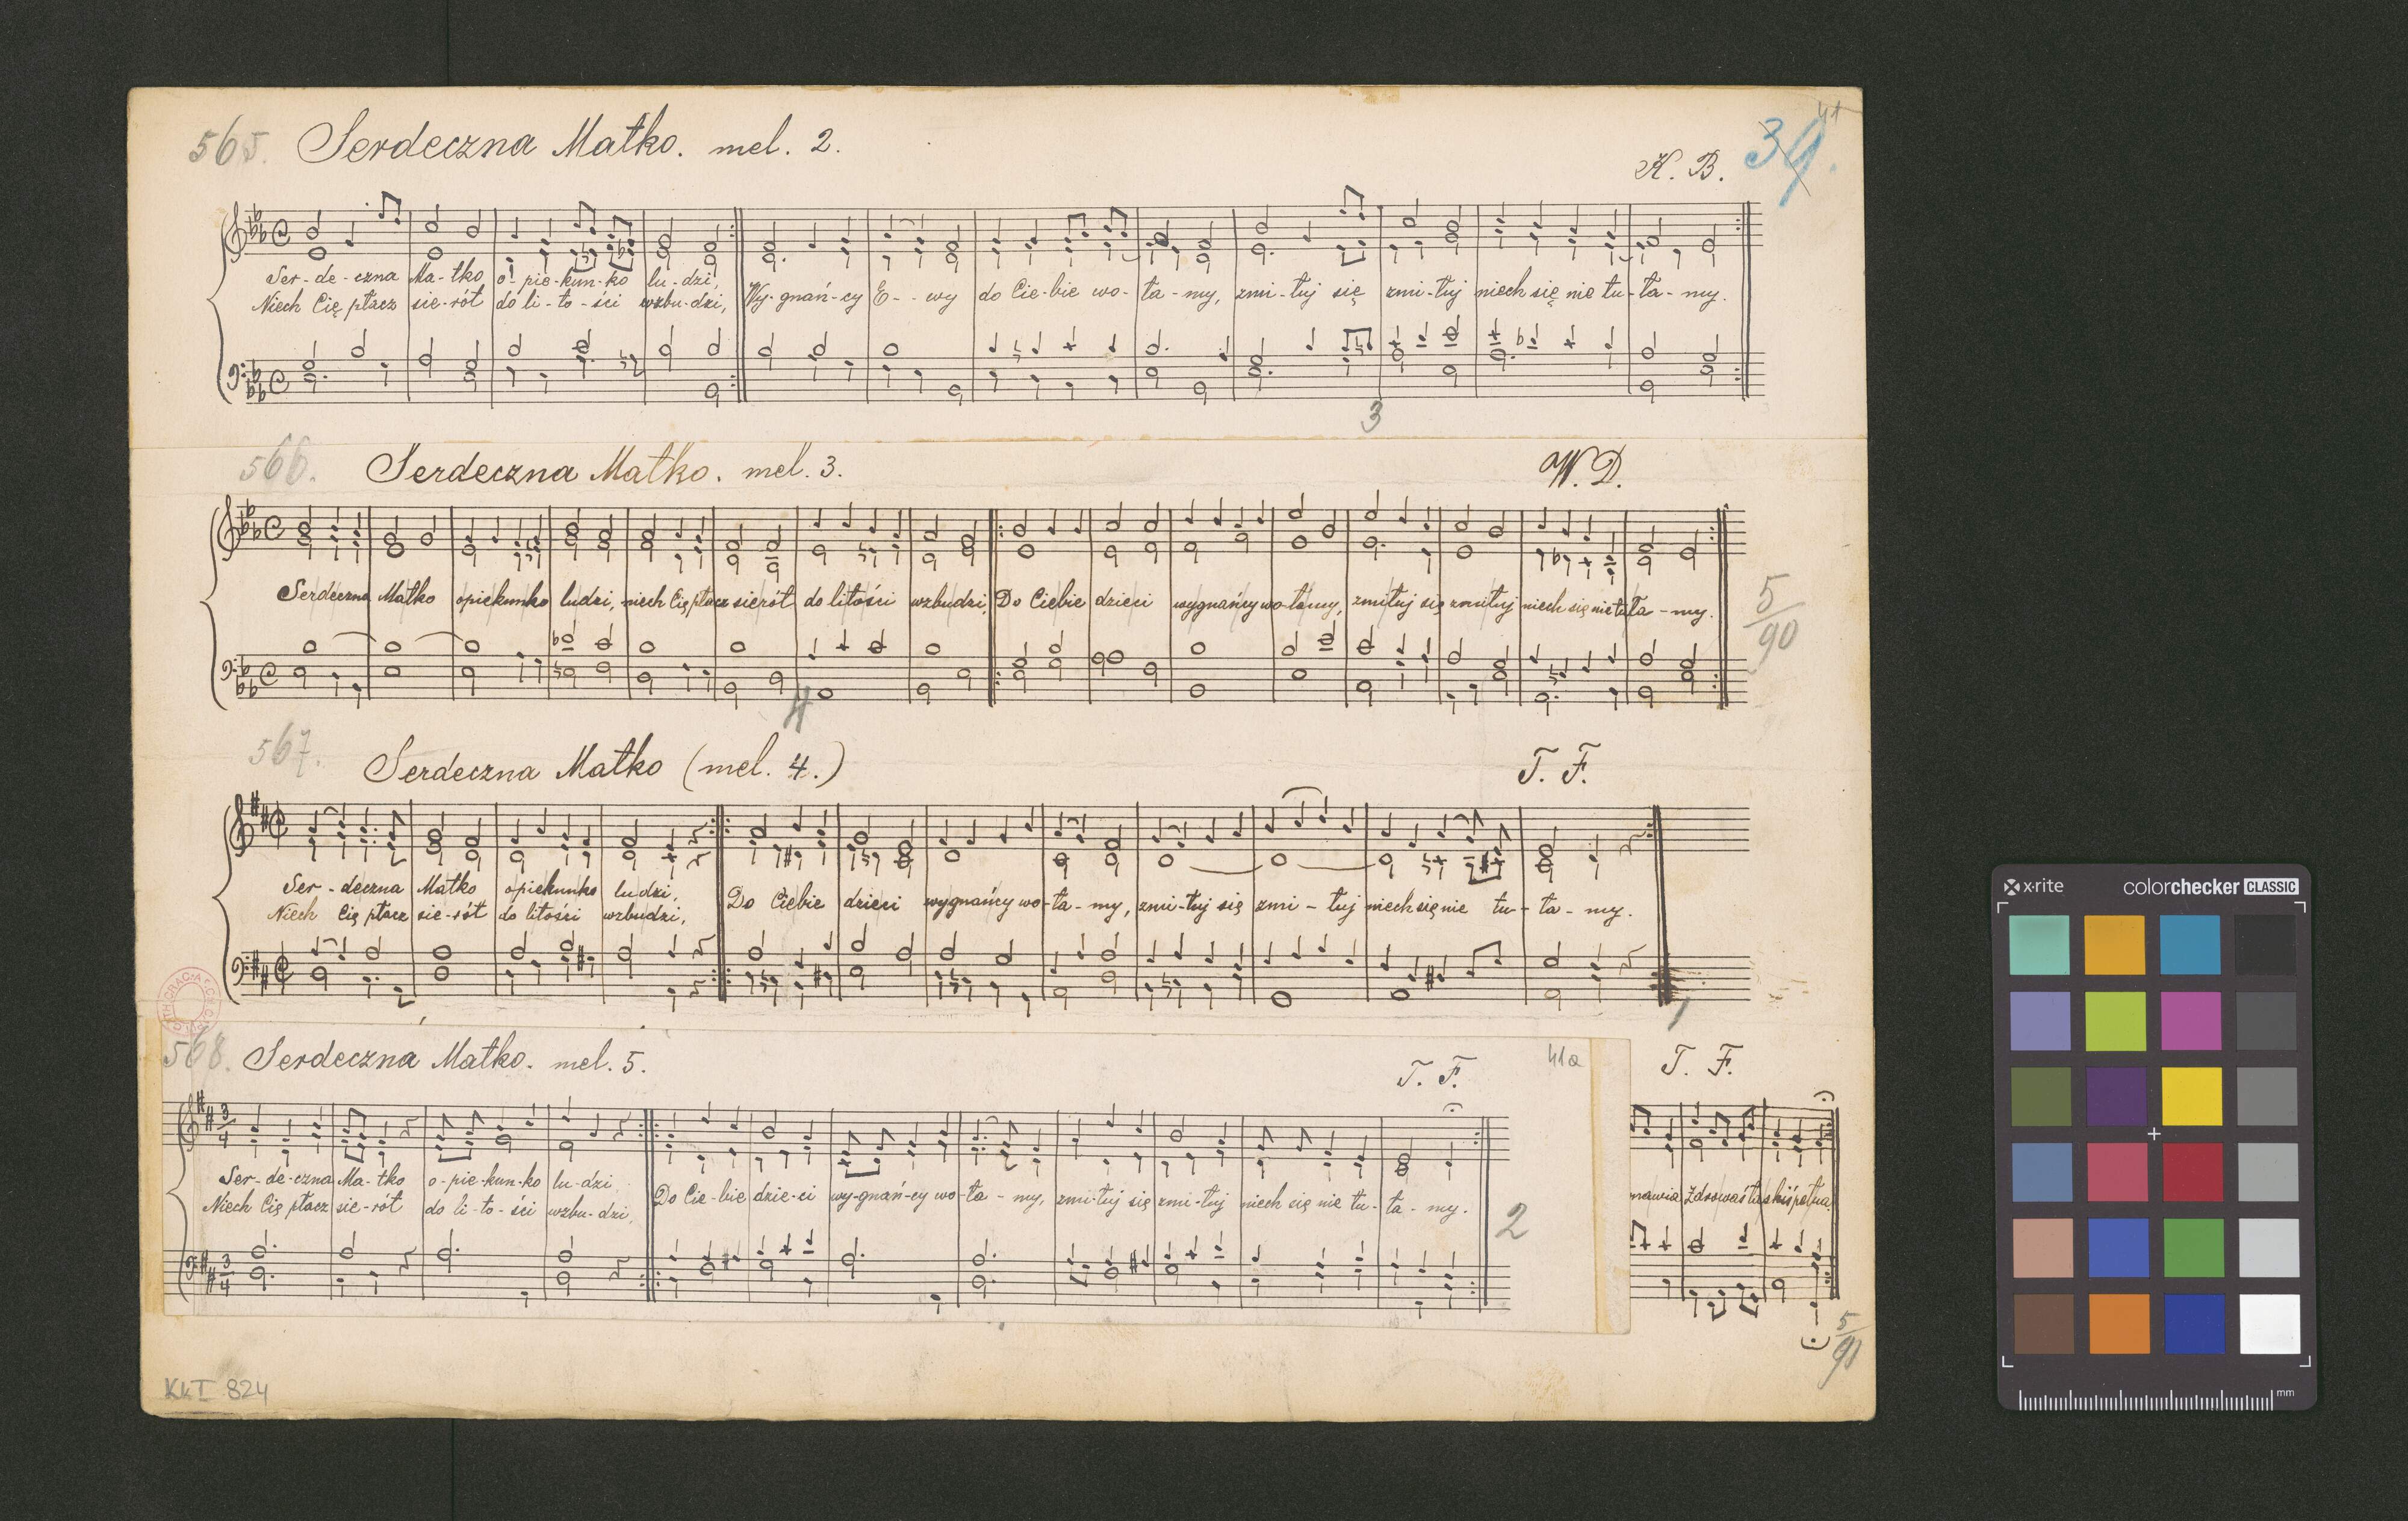 41
565. Serdeczna Matko. mel. 2.
K. B. 34.
Ser-de-czna Ma-tko o! pie-kun-ko lu-dzi,
Niech Cię płacz sie-rót do li-to-ści wzbu-dzi, Wy-gnań-cy E--wy do Cie-bie wo-ła-my, zmi-łuj się zmi-łuj niech się nie tu-ła-my.
3
566. Serdeczna Matko. mel. 3. W. D.
Serdeczna Matko opiekunko ludzi, niech Cię płacz sierót do litości wzbudzi, Do Ciebie dzieci wygnańcy wo-łamy, zmiłuj się zmiłuj niech się nie tuła-my.
5/90
4
567. Serdeczna Matko (mel. 4.) T. F.
Ser-deczna Matko opiekunko ludzi,
Niech Cię płacz sie-rót do litości wzbudzi, Do Ciebie dzieci wygnańcy wo-ła-my, zmi-łuj się zmi-łuj niech się nie tu-ła-my.
1
568. Serdeczna Matko. mel. 5. T. F. 41a T. F.
3/4
Ser-de-czna Ma-tko o-pie-kun-ko lu-dzi
Niech Cię płacz sie-rót do li-to-ści wzbu-dzi, Do Cie-bie dzie-ci wy-gnań-cy wo-ła-my, zmi-łuj się zmi-łuj niech się nie tu-ła-my.
2
3/4
5/91
KkI 824
x-rite colorchecker CLASSIC
mm